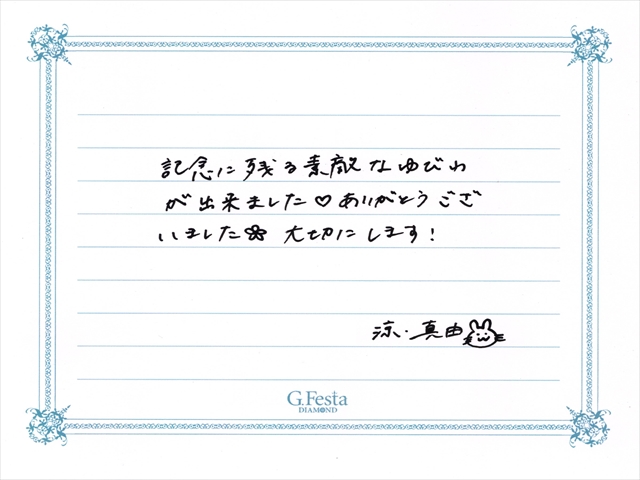 記念に残る素敵なゆびわ
が出来ました♡ありがとうござ
いました✿ 大切にします!
涼・真由
G.Festa
DIAMOND